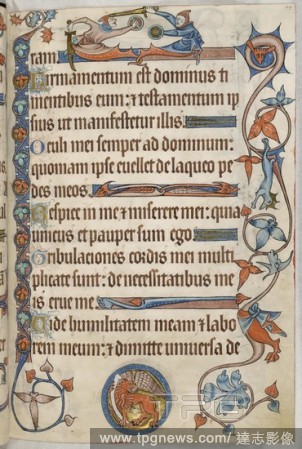 ram
Firmamentum est dominus ti
mentibus eum: ⁊ testamentum ip
sius ut manifestetur illis.
Oculi mei semper ad dominum:
quoniam ipse euellet de laqueo pe
des meos.
Respice in me ⁊ miserere mei: quia
unicus et pauper sum ego.
Tribulaciones cordis mei multi
plicate sunt: de necessitatibus me
is erue me.
Uide humilitatem meam ⁊ labo
rem meum: ⁊ dimitte universa de
TPG
www.tpgnews.com/達志影像